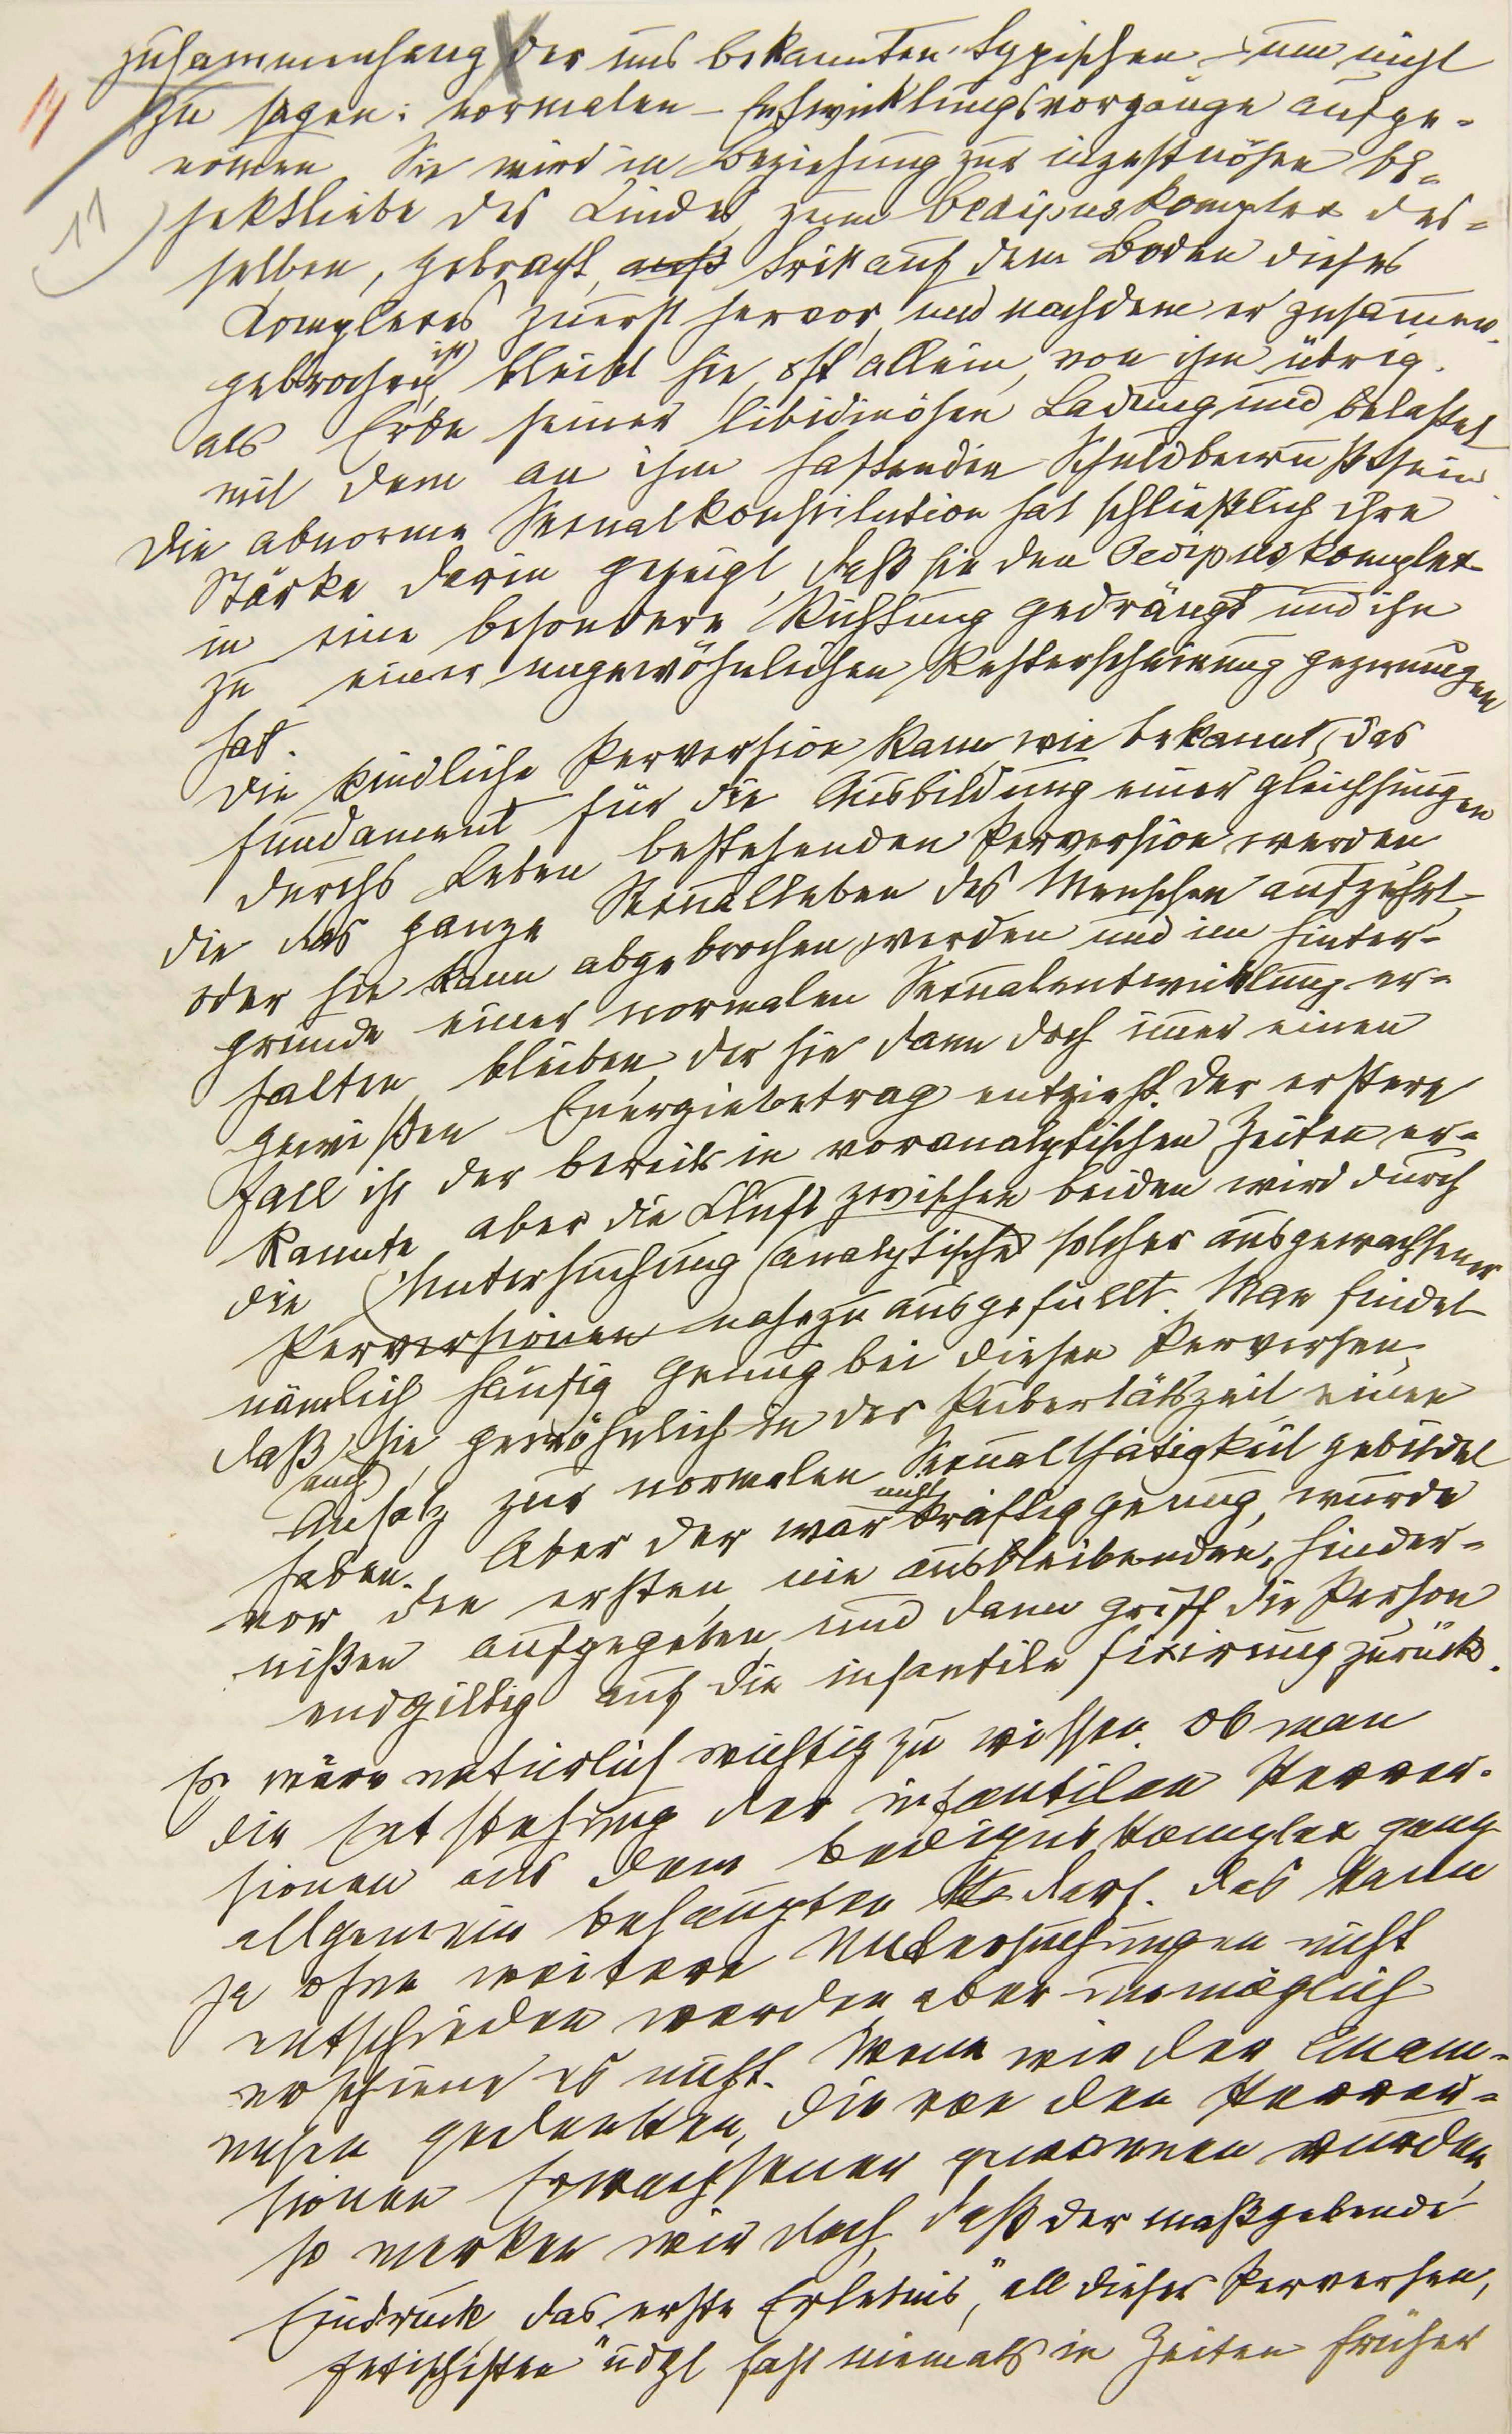 Zusammenhang der uns bekannten typischen – um nicht
14 zu sagen: normalen – Entwicklungsvorgänge aufge=
nomen. Sie wird in Beziehung zur inzestuösen Ob=
11) jektliebe des Kindes, zum Oedipuskomplex des=
selben, gebracht, auf tritt auf dem Boden dieses
Komplexes zuerst hervor, und nachdem er zusammen=
gebrochen ist, bleibt sie, oft allein, von ihm übrig.
als Erbe seiner libidinösen Ladung und belastet
mit dem an ihm haftenden Schuldbewußtsein.
Die abnorme Sexualkonstitution hat schließlich ihre
Stärke darin gezeigt, daß sie den Oedipuskomplex
in eine besondere Richtung gedrängt und ihn
zu einer ungewöhnlichen Resterscheinung gezwungen
hat.
Die kindliche Perversion kann, wie bekannt, das
Fundament für die Ausbildung einer gleichsinnigen
durchs Leben bestehenden Perversion werden
die das ganze Sexualleben des Menschen aufzehrt,
oder sie kann abgebrochen werden und im Hinter=
grunde einer normalen Sexualentwicklung er=
halten bleiben, der sie dann doch imer einen
gewißen Energiebetrag entzieht. Der erstere
Fall ist der bereits in voranalytischen Zeiten er=
kannte, aber die Kluft zwischen beiden wird durch
die Untersuchung (analytische) solcher ausgewachsener
Perversionen nahezu ausgefüllt. Man findet
nämlich häufig genug bei diesen Perversen,
daß sie, gewöhnlich in der Pubertätszeit einen
auch
Ansatz zur normalen Sexualthätigkeit gebildet
haben. Aber der war nicht kräftig genug, wurde
vor den ersten, nie ausbleibenden, Hinder=
nißen aufgegeben, und dann griff die Person
endgiltig auf die infantile Fixirung zurück.
Es wäre natürlich wichtig zu wissen, ob man
die Entstehung der infantilen Perver=
sionen aus dem Oedipuskomplex ganz
allgemein behaupten darf. Das kann
ja ohne weitere Untersuchungen nicht
entschieden werden, aber unmöglich
erschiene es nicht. Wenn wir der Anam=
nesen gedenken, die von den Perver=
sionen Erwachsener gewonnen wurden,
so merken wir doch, daß der maßgebende
Eindruck, das „erste Erlebnis", all dieser Perversen,
Fetischisten udgl fast niemals in Zeiten früher